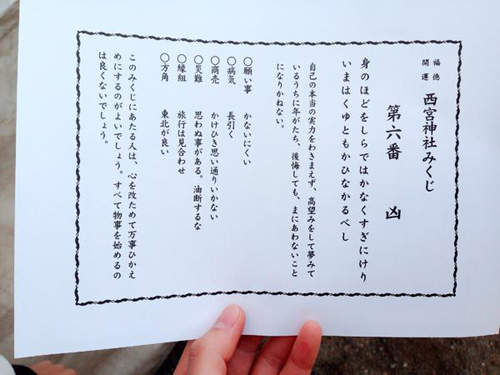 福徳開運 西宮神社みくじ
第六番 凶
身のほどをしらではかなくすぎにけり
いまはくゆともかひなかるべし
自己の本当の実力をわきまえず、高望みをして夢みて
いるうちに年がたち、後悔しても、まにあわないこと
になりかねない。
○願い事 かないにくい
○病気 長引く
○商売 かけひき思い通りいかない
○災難 思わぬ事がある、油断するな
○縁組 旅行は見合わせ
○方角 東北が良い
このみくじにあたる人は、心を改ためて万事ひかえ
めにするのがよいでしょう。すべて物事を始めるの
は良くないでしょう。